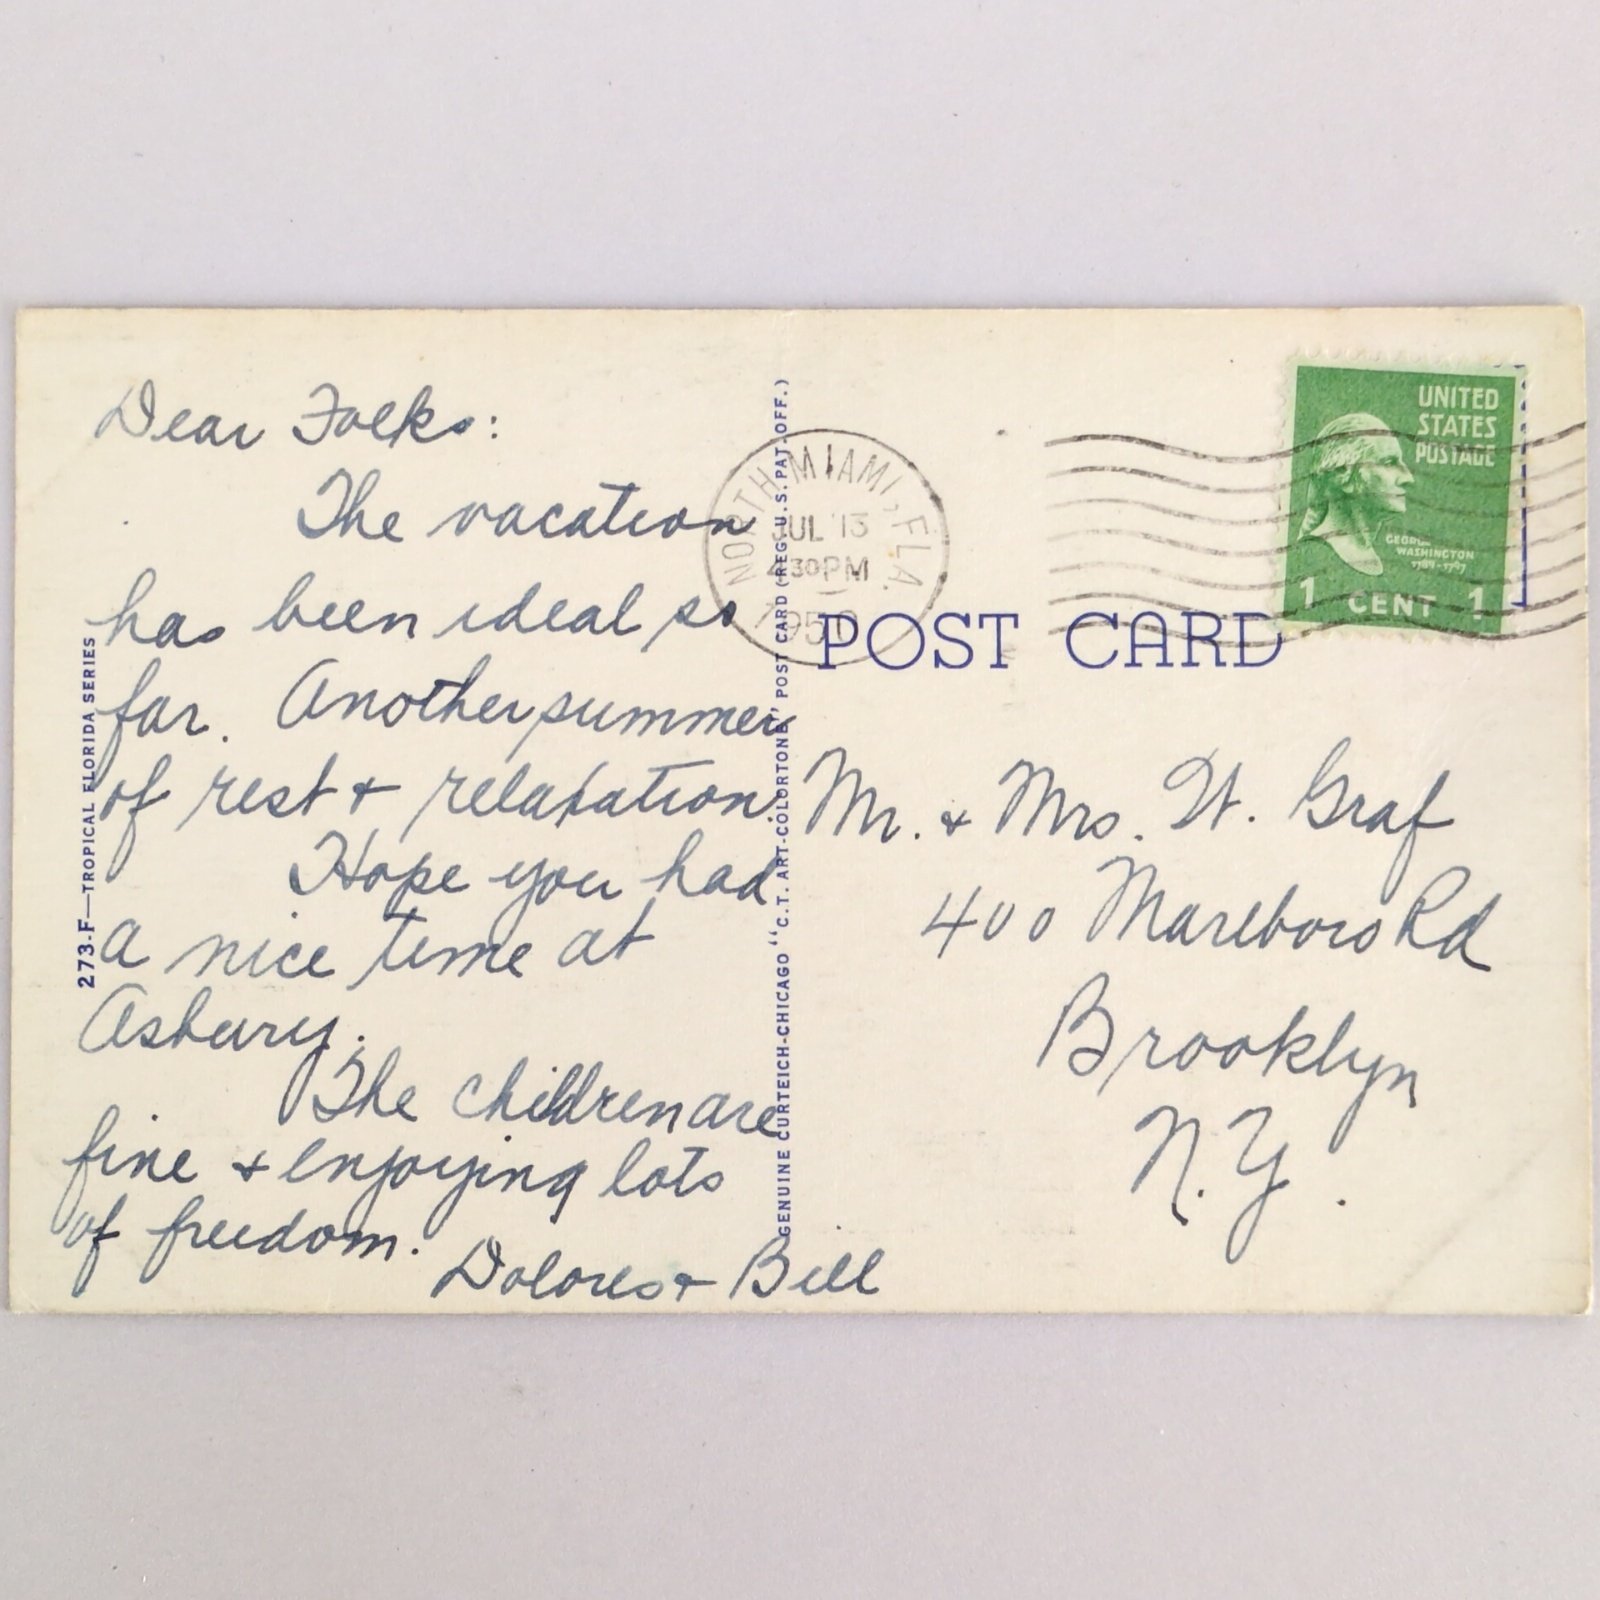 Dear Folks:
The vacation
has been ideal so
far. Another summer
of rest + relaxation.
Hope you had
a nice time at
Asbury.
The children are
fine + enjoying lots
of freedom.
Dolores + Bill
273-F—TROPICAL FLORIDA SERIES
GENUINE CURTEICH-CHICAGO "C.T. ART-COLORTONE" POST CARD (REG. U.S. PAT. OFF.)
NORTH MIAMI, FLA.
JUL 13
4 30 PM
UNITED
STATES
POSTAGE
GEORGE
WASHINGTON
1789-1797
1 CENT 1
POST CARD
Mr. + Mrs. W. Graf
400 Marlboro Rd
Brooklyn
N.Y.